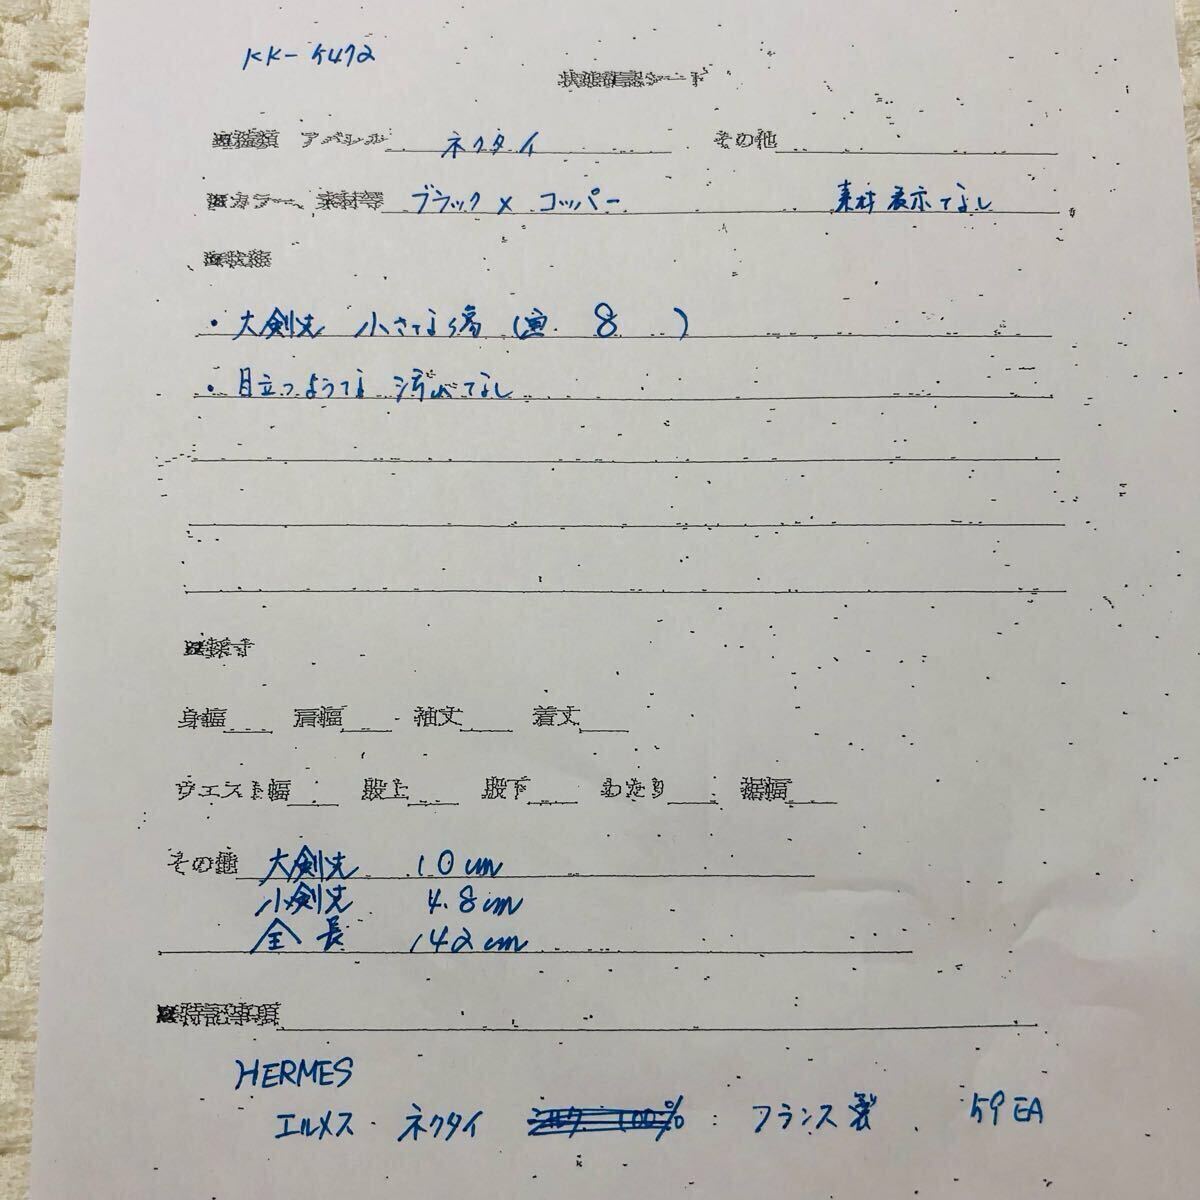 KK-5472
状態確認シート
■種類 アパレル ネクタイ その他
■カラー、素材等 ブラック × コッパー 素材表示なし
■状態
・大剣先 小さな傷 (画 8 )
・目立つような汚れなし
■採寸
身幅 肩幅 袖丈 着丈
ウエスト幅 股上 股下 わたり 裾幅
その他 大剣先 10cm
小剣先 4.8cm
全長 142cm
■特記事項
HERMES
エルメス・ネクタイ シルク 100% : フランス製 . 59EA